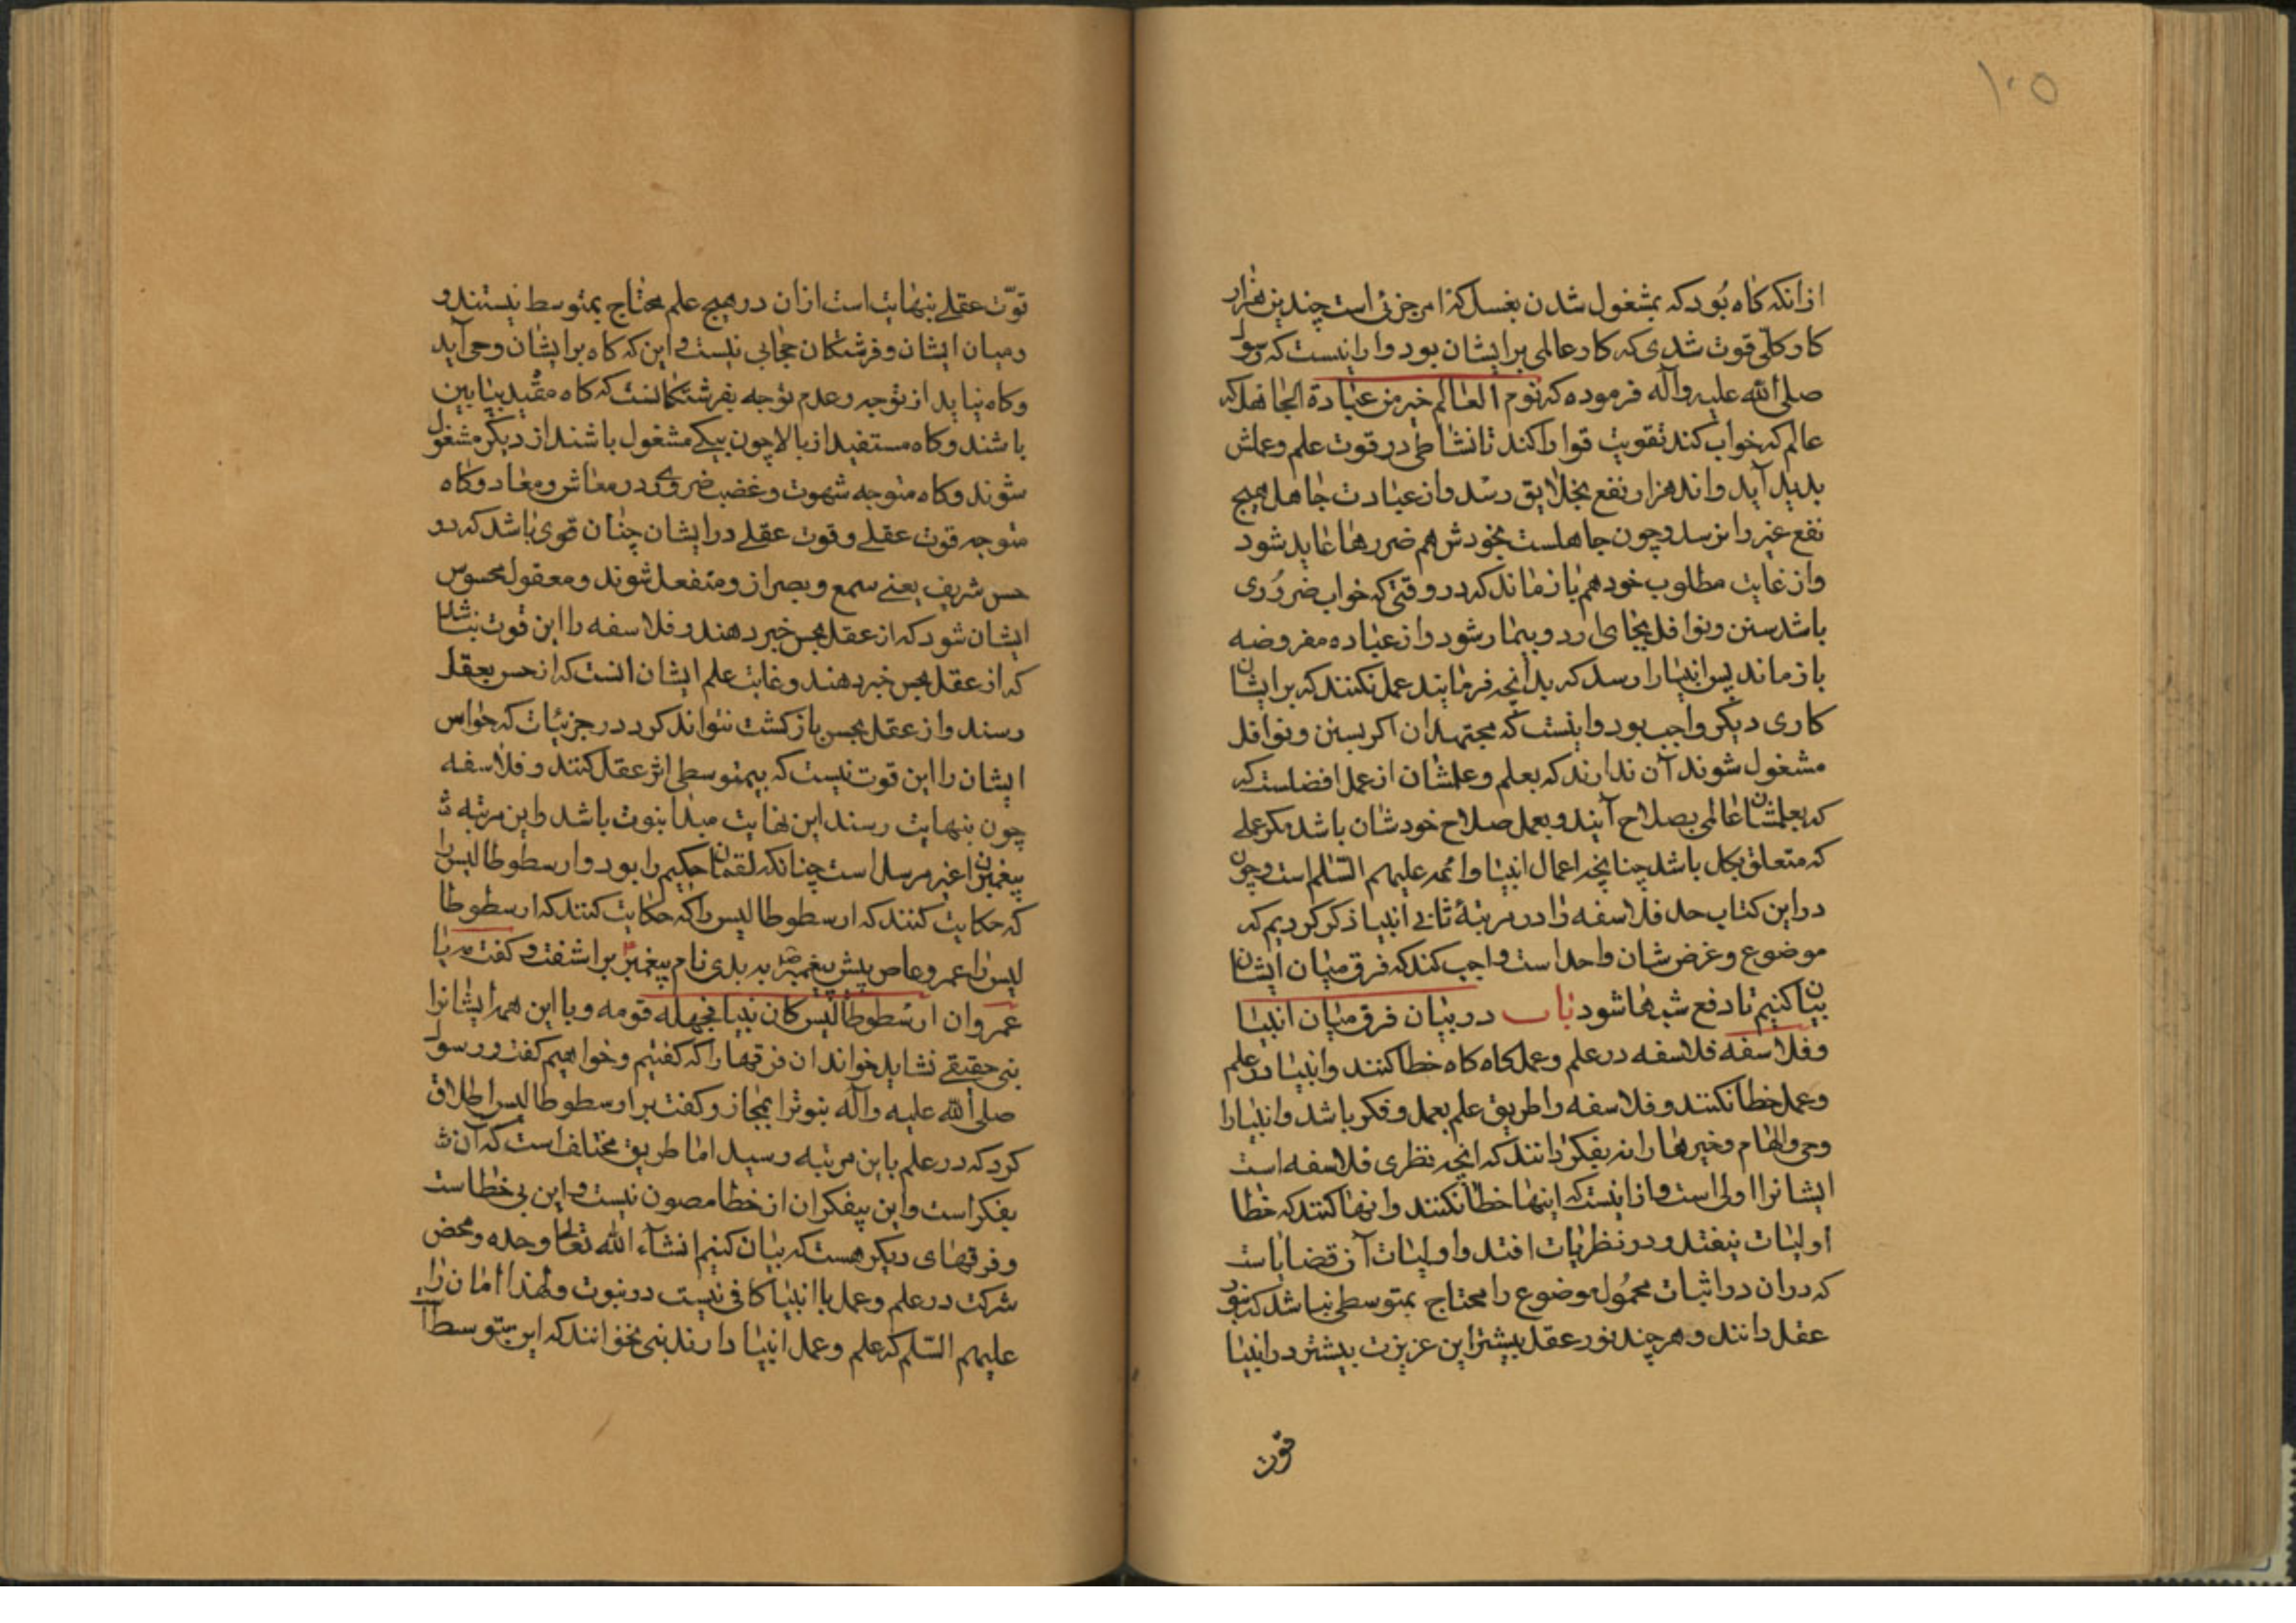 ۱۰۵
ازانکه کاه بُود که بمشغول شدن بغسل که امر جزئی است چندین هزار
کار کلّی فوت شدی که کار عالمی بر ایشان بود و از اینست که رسول
صلی الله علیه وآله فرموده که نوم العالم خیر من عبادة الجاهل که
عالم که خواب کند تقویت قوا را کند تا نشاطی در قوت علم وعملش
پدید آید و اند هزار نفع بخلایق رسد و از عبادت جاهل هیچ
نفع غیر را نرسد و چون جاهلست بخودش هم ضررها عاید شود
واز غایت مطلوب خود هم باز ماند که در وقتی که خواب ضروری
باشد سنن و نوافل بجای ارد و بیمار شود و از عباده مفروضه
باز ماند پس انبیا را رسد که بدانچه فرمایند عمل نکنند که بر ایشان
کاری دیکر واجب بود و اینست که مجتهدان اکر بسنن و نوافل
مشغول شوند آن ندارند که بعلم وعلمشان از عمل افضلست که
که بعلمشان عالمی بصلاح آیند و بعمل صلاح خودشان باشد مکر عملی
که متعلق بکل باشد چنانچه اعمال انبیا و ائمه علیهم السّلم است و چون
در این کتاب حد فلاسفه را در مرتبهٔ ثانی انبیا ذکر کردیم که
موضوع وغرض شان واحد است واجب کند که فرق میان ایشان
بیان کنیم تا دفع شبهها شود باب در بیان فرق میان انبیا
وفلاسفه فلاسفه در علم وعمل کاه کاه خطا کنند وانبیا در علم
وعمل خطا نکنند و فلاسفه را طریق علم بعمل و فکر باشد و انبیا را
وحی والهام وخبرها را نه بفکر دانند که انچه نظری فلاسفه است
ایشانرا اولی است و از اینست که اینها خطا نکنند و انها کنند که خطا
اولیات نیفتد و در نظریات افتد و اولیات آن قضایاست
که دران در اثبات محمُول موضوع را محتاج بمتوسطی نباشد که بنور
عقل دانند و هر چند نور عقل بیشتر این عزیزت بیشتر در انبیا
قوّت
قوّت عقلے بنهایت است ازان در هیچ علم محتاج بمتوسط نیستند و
ومیان ایشان وفرشتکان حجابی نیست و این که کاه بر ایشان وحی آید
وکاه نیاید از توجه و عدم توجه بفرشتکانست که کاه مقیّد بپایین
باشند وکاه مستفید از بالا چون بیکے مشغول باشند از دیکر مشغول
شوند وکاه متوجه شهوت و غضب ضروری در معاش و معاد وکاه
متوجه قوت عقلے و قوت عقلے در ایشان چنان قوی باشد که دو
حس شریف یعنے سمع و بصر از و منفعل شوند ومعقول محسوس
ایشان شود که از عقل بحس خبر دهند و فلاسفه را این قوت نباشد
که از عقل بحس خبر دهند وغایت علم ایشان انست که از حس بعقل
رسند و از عقل بحس باز کشت نتواند کرد در جزئیات که حواس
ایشان را این قوت نیست که بیمتوسطی اثر عقل کنند و فلاسفه
چون بنهایت رسند این نهایت مبدا نبوت باشد واین مرتبه
پیغمبران غیر مرسل است چنانکه لقمان حکیم را بود و ارسطوطالیس را
که حکایت کنند که ارسطوطالیس را که حکایت کنند که ارسطوطا
لیس را عمر وعاص پیش پیغمبر به بدی نام پیغمبر بر اشفت و کفت مه یا
عمرو ان ارسطوطالیس کان نبیا فجهله قومه و با این همه ایشانرا
نبی حقیقے نشاید خواند ان فرقها را که کفتیم و خواهیم کفت و رسول
صلی الله علیه وآله نبوترا بمجاز و کفت بر ارسطوطالیس اطلاق
کرد که در علم باین مرتبه رسید اما طریق مختلف است که آن
بفکر است و این بیفکر ان از خطا مصون نیست و این بی خطاست
وفرقهای دیکر هست که بیان کنیم انشآء الله تعالی وحده ومحض
شرکت در علم وعمل با انبیا کافی نیست در نبوت ولهذا امامان را
علیهم السّلم که علم وعمل انبیا دارند نبی نخوانند که این بتوسط